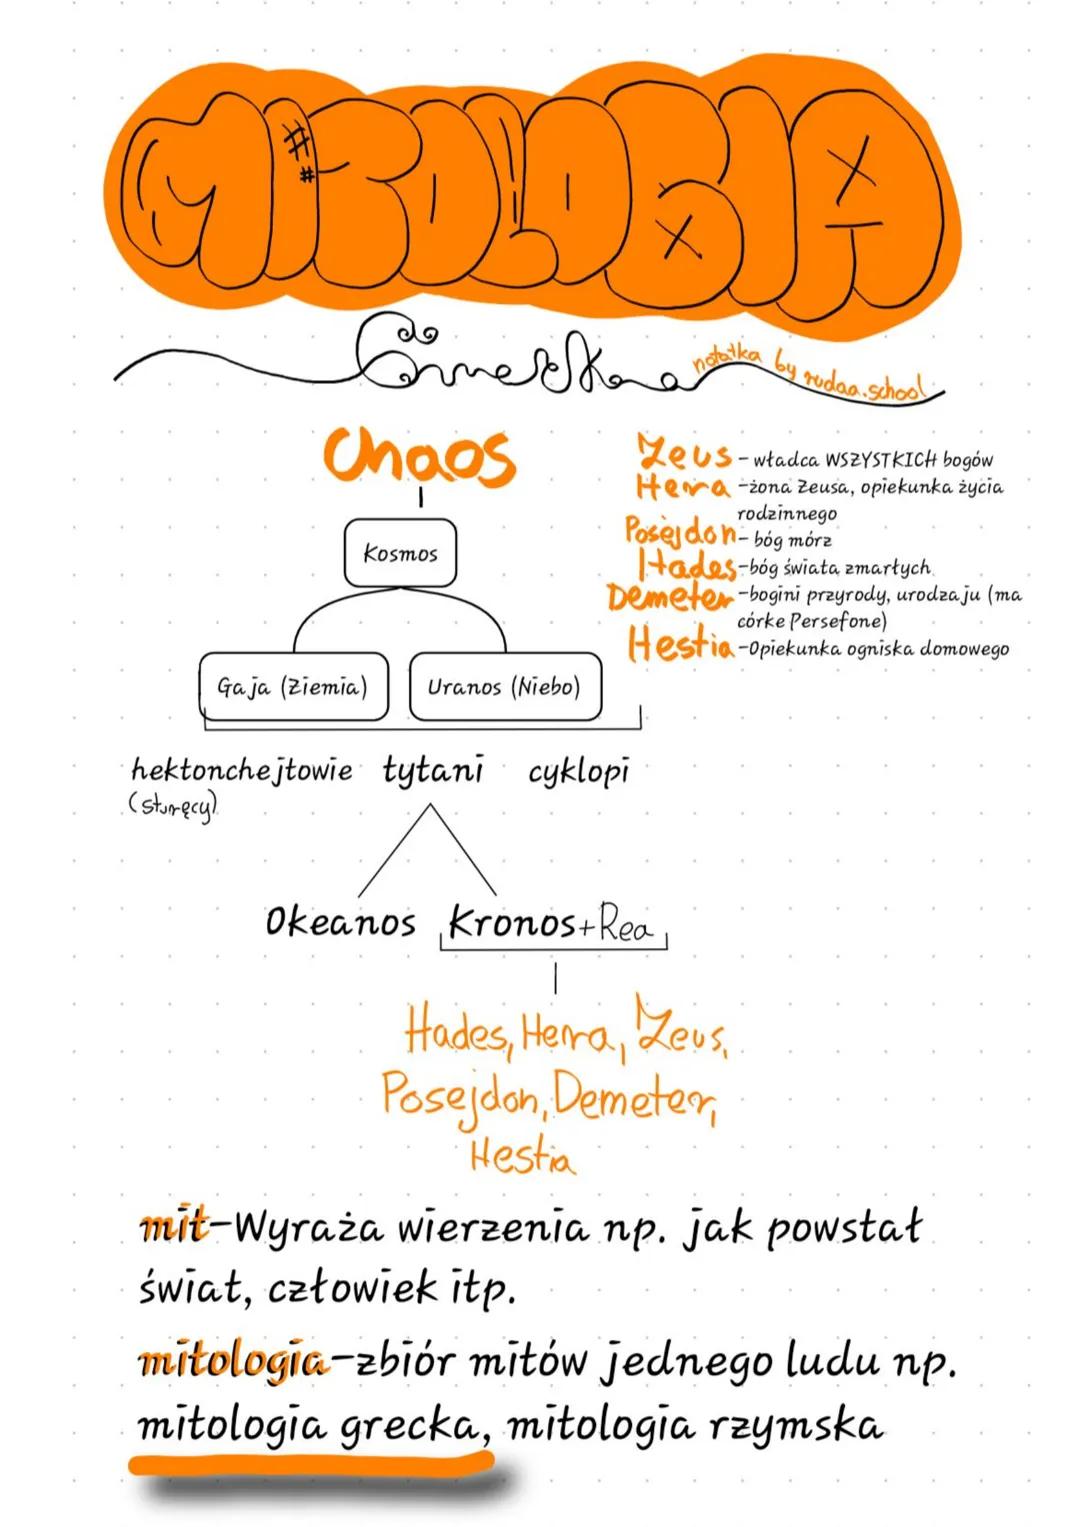 MITOLOGIA
Grecka
notatka by rudaa.school
Chaos
Kosmos
Gaja (Ziemia)
Uranos (Niebo)
hektonchejtowie tytani cyklopi
(sturęcy)
Okeanos Kronos+Rea
Hades, Hera, Zeus,
Posejdon, Demeter,
Hestia
Zeus - władca WSZYSTKICH bogów
Hera -żona Zeusa, opiekunka życia
rodzinnego
Posejdon- bóg mórz
Hades-bóg świata zmarłych
Demeter-bogini przyrody, urodzaju (ma
córke Persefone)
Hestia-Opiekunka ogniska domowego
mit-Wyraża wierzenia np. jak powstał
świat, człowiek itp.
mitologia-zbiór mitów jednego ludu np.
mitologia grecka, mitologia rzymska